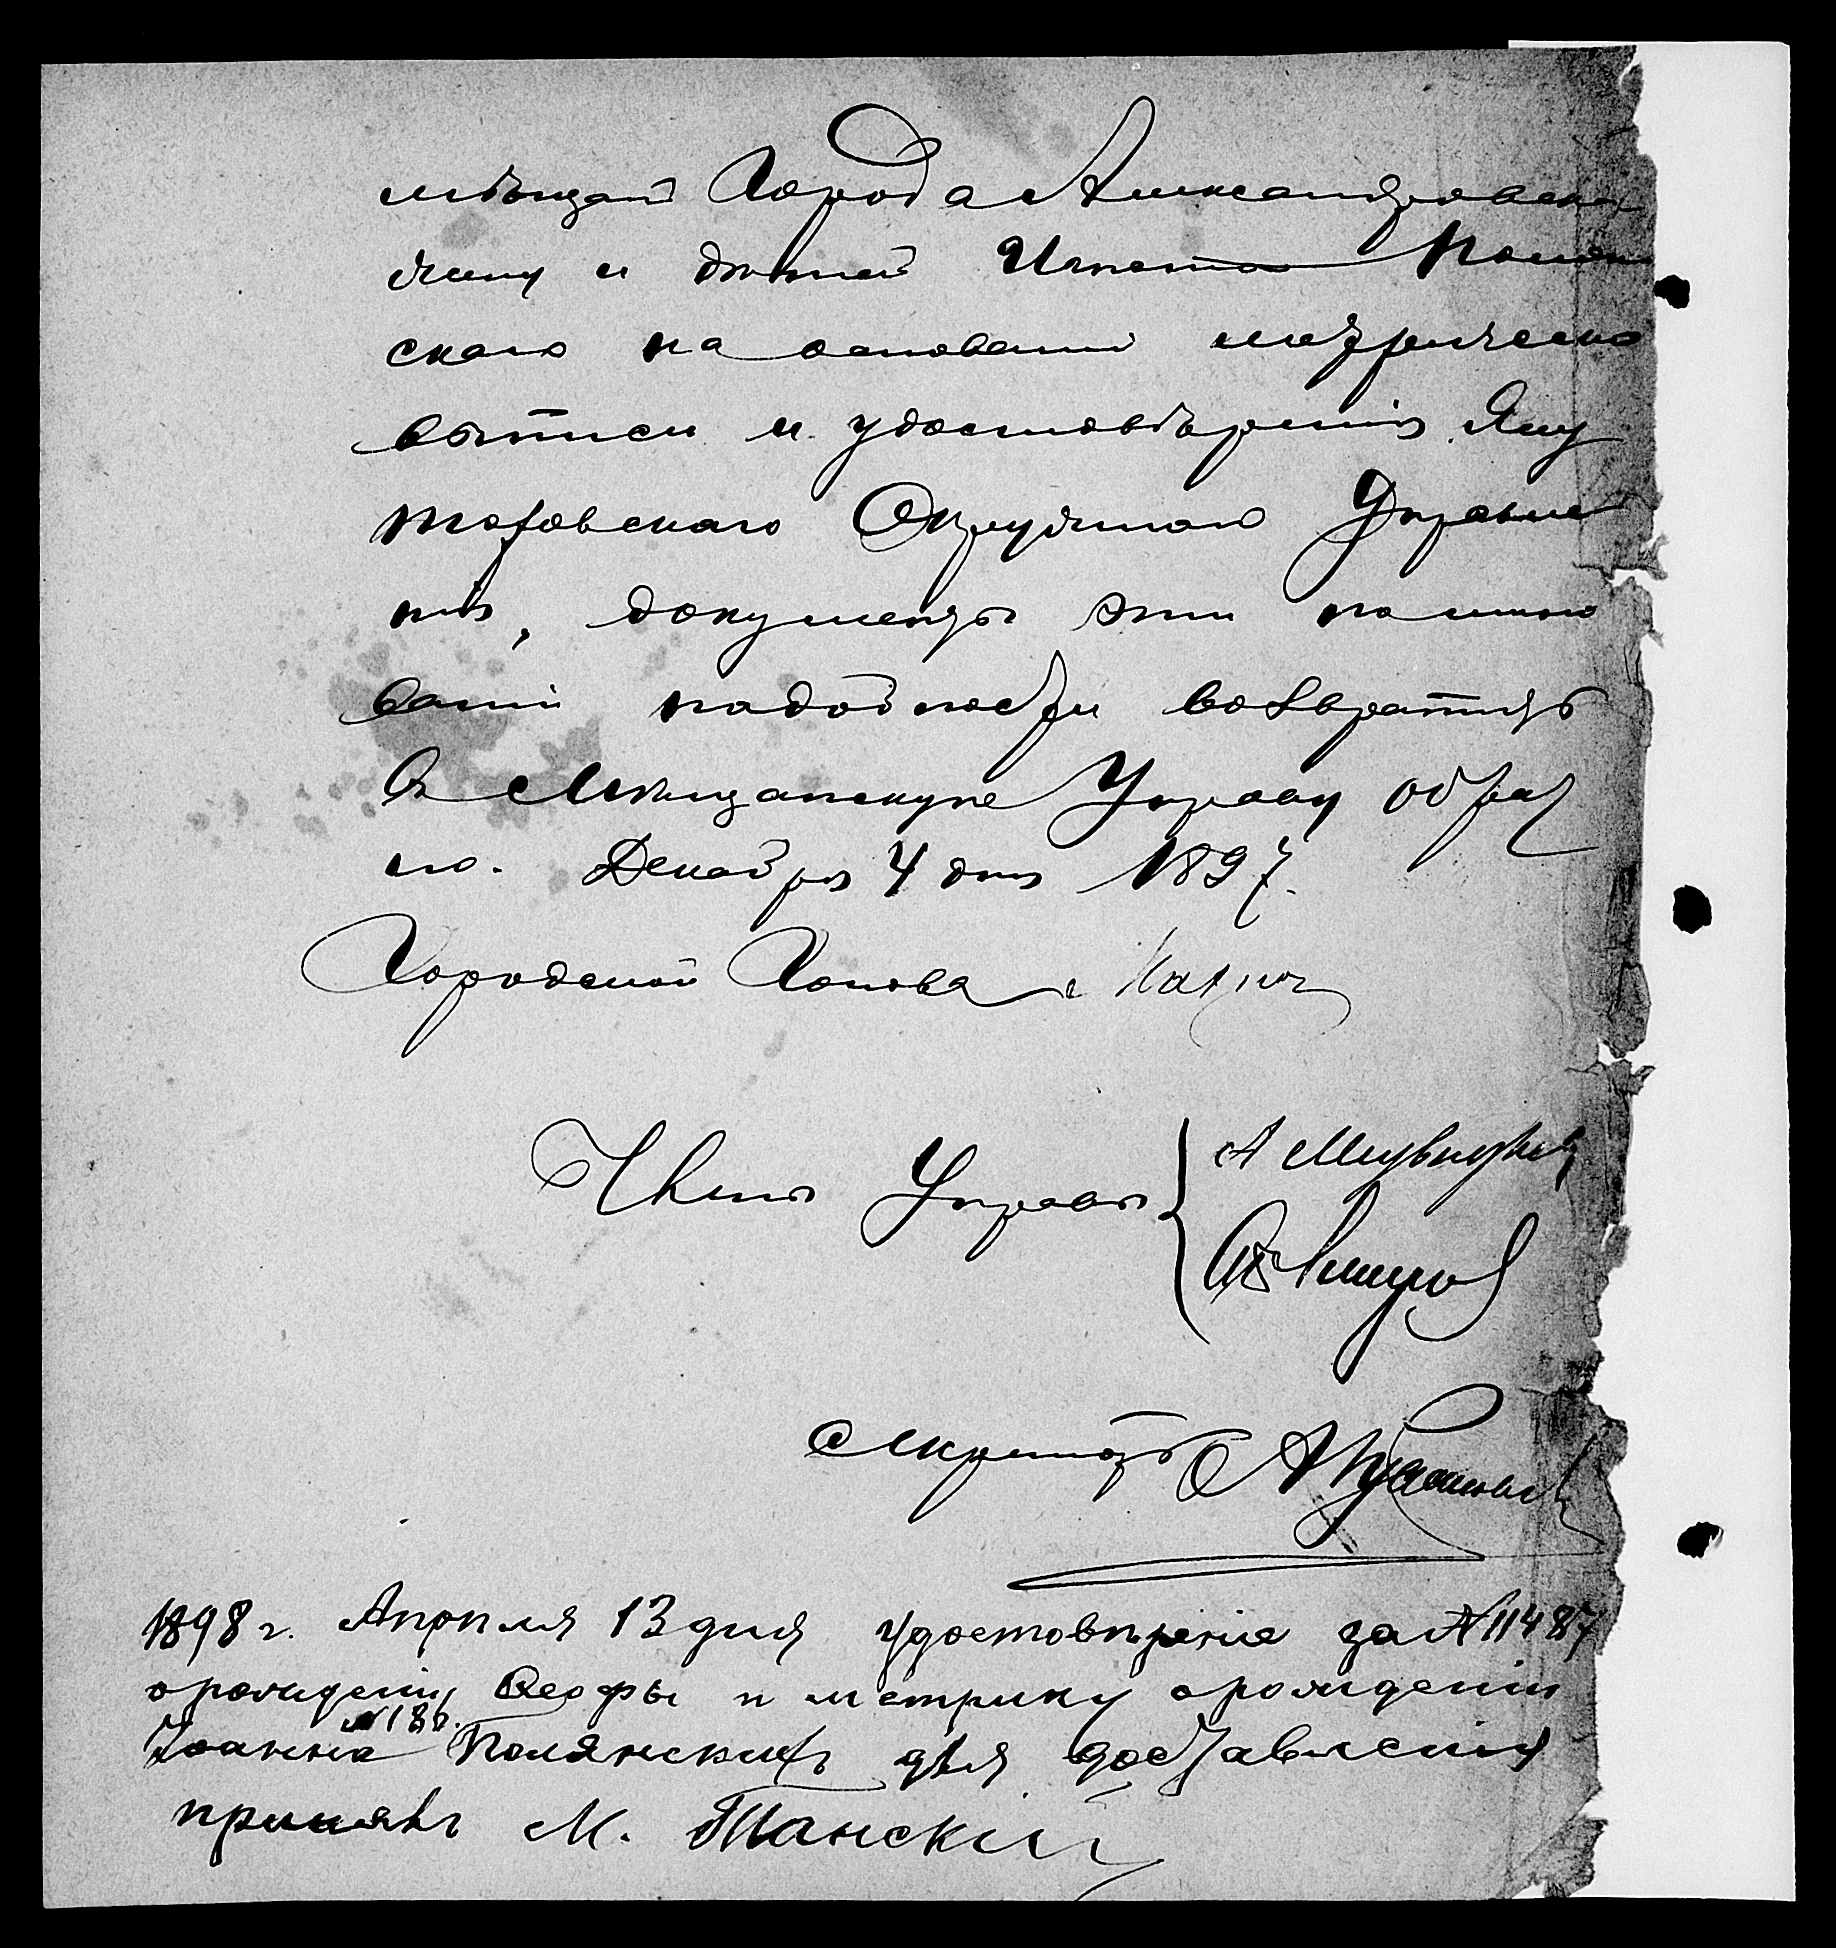 мѣщанъ Города Александровска
жену и дѣтей Игната Полян
скаго на основаніи метрическо
выписи и удостовѣренія Ялу
торовскаго Окружнаго Управле
нія, документы эти по мино
ваніи надобности возвратить
въ Мѣщанскую Управу обрат
но. Декабря 4 дня 1897.
Городской Голова
Члены Управы
Секретарь
1898 г. Апрѣля 13 дня удостовѣреніе за № 11487
о рожденіи Өеофы и метрику о рожденіи
№ 180.
Іоанна Полянскихъ для доставленія
принялъ М. Танскій